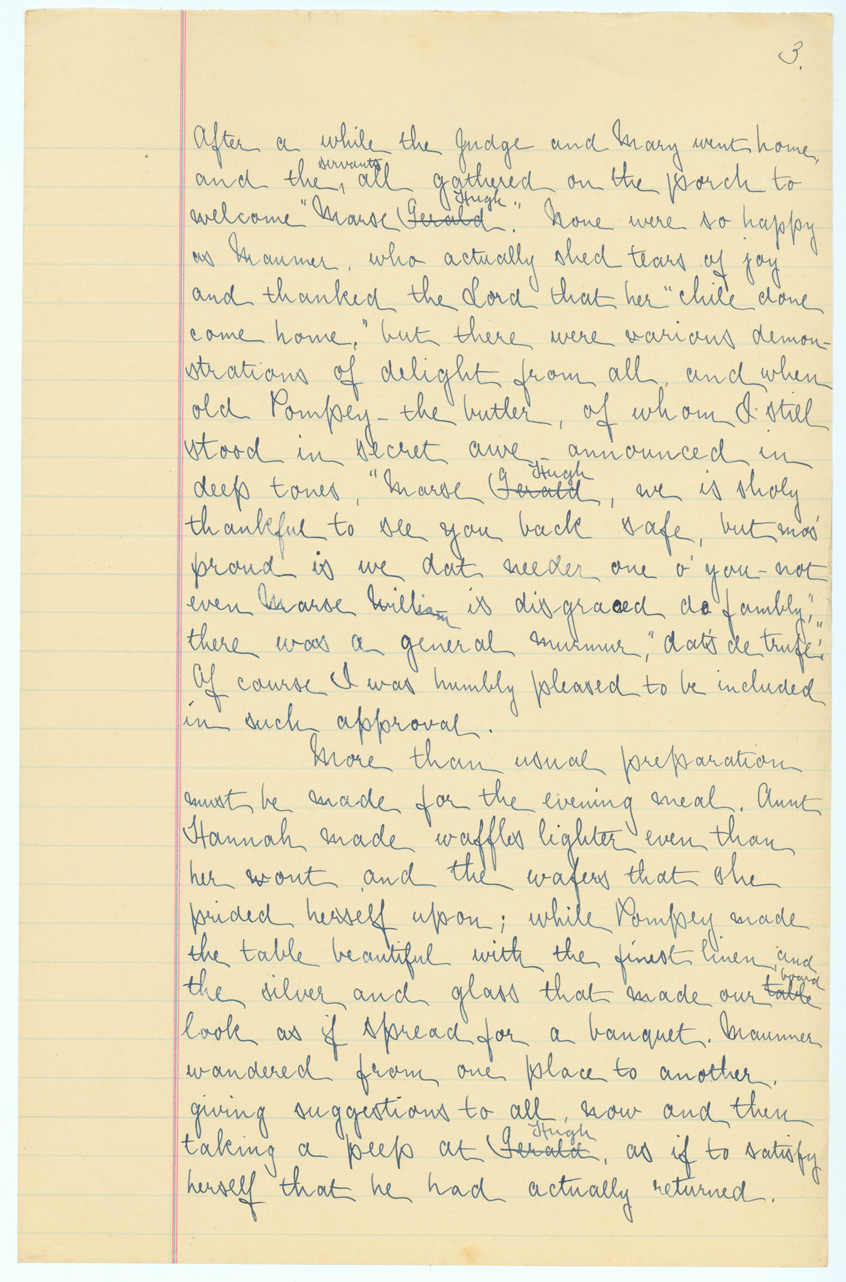 3.
After a while the Judge and Mary went home,
and the servants, all gathered on the porch to
welcome "Marse ~~Gerald~~ Hugh." None were so happy
as Maumer, who actually shed tears of joy
and thanked the Lord that her "chile done
come home," but there were various demon-
strations of delight from all, and when
old Pompey - the butler, of whom I still
stood in secret awe - announced in
deep tones, "Marse ~~Gerald~~ Hugh, we is sholy
thankful to see you back safe, but mos'
proud is we dat needer one o' you - not
even Marse William is disgraced de fambly,"
there was a general murmur, "dat's de trufe."
Of course I was humbly pleased to be included
in such approval.
More than usual preparation
must be made for the evening meal. Aunt
Hannah made waffles lighter even than
her wont, and the wafers that she
prided herself upon; while Pompey made
the table beautiful with the finest linen, and
the silver and glass that made our ~~table~~ board
look as if spread for a banquet. Maumer
wandered from one place to another,
giving suggestions to all, now and then
taking a peep at ~~Gerald~~ Hugh, as if to satisfy
herself that he had actually returned.